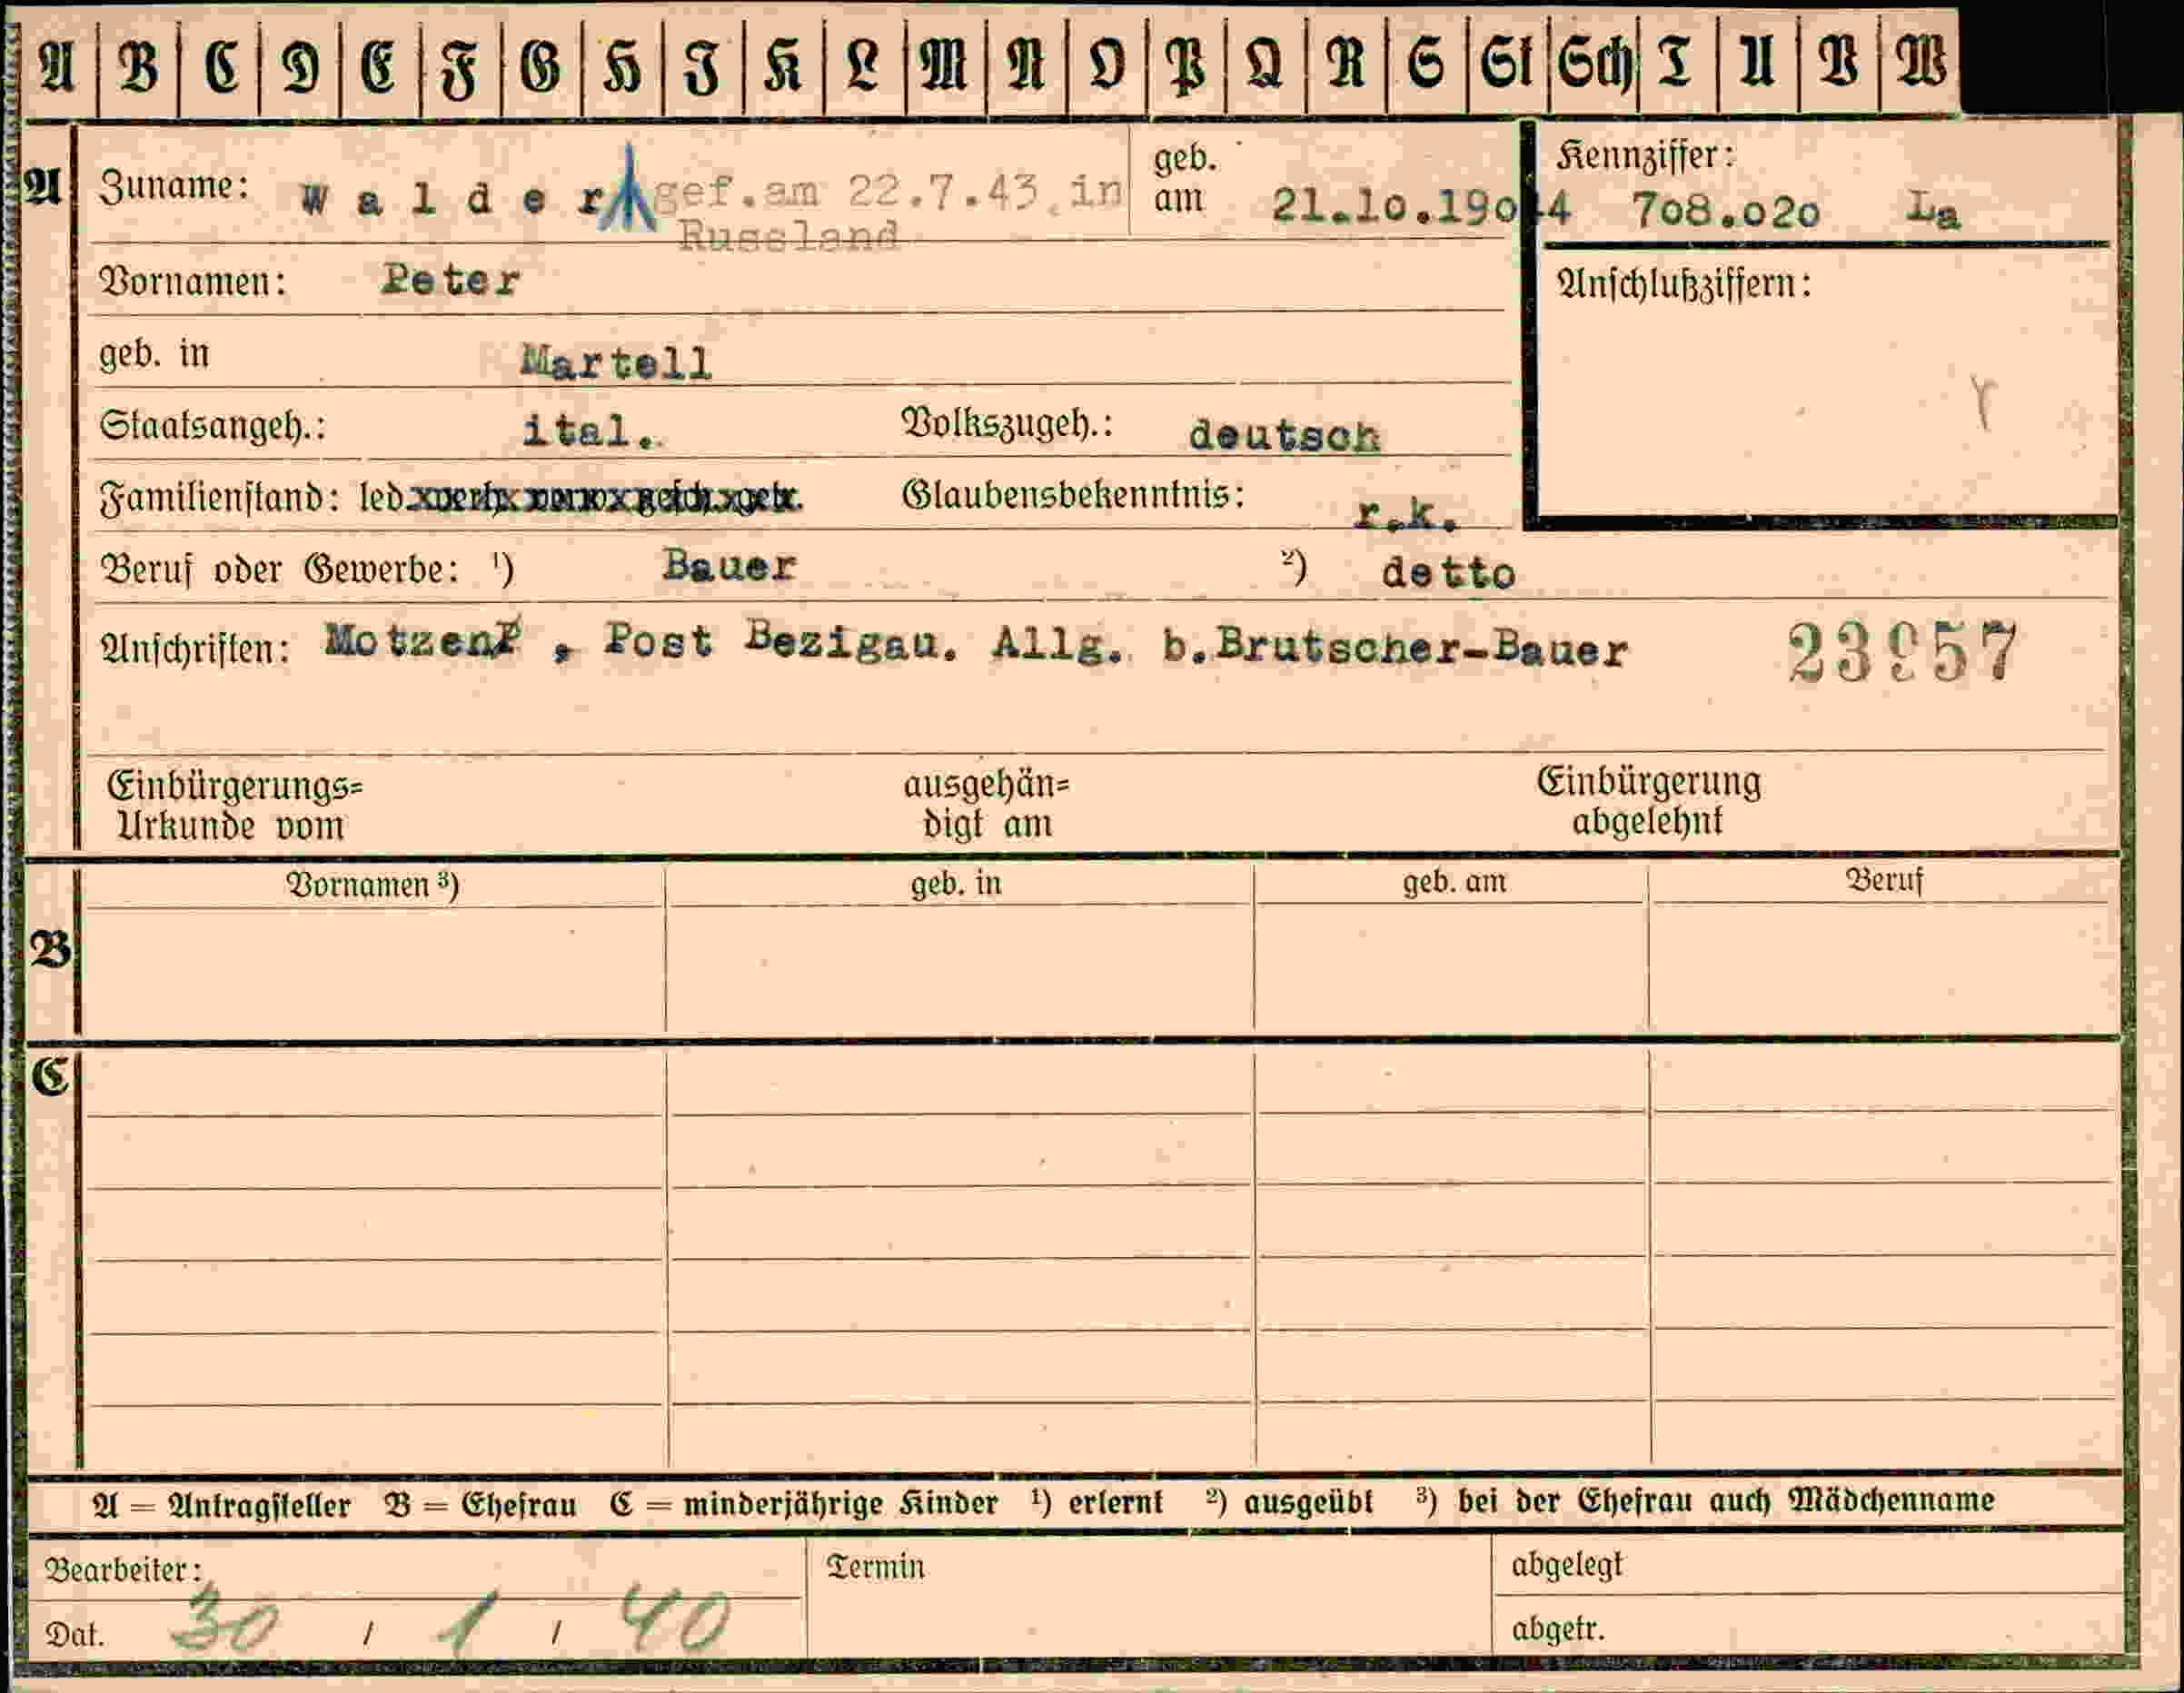 A B C D E F G H J K L M N O P Q R S St Sch T U V W
A Zuname: W a l d e r gef.am 22.7.43 in geb. am 21.10.1904 Kennziffer: 708.020 La
Russland
Vornamen: Peter Anschlußziffern:
geb. in Martell
Staatsangeh.: ital. Volkszugeh.: deutsch
Familienstand: led. Glaubensbekenntnis: r.k.
Beruf oder Gewerbe: 1) Bauer 2) detto
Anschriften: Motzen , Post Bezigau. Allg. b.Brutscher-Bauer 23957
Einbürgerungs= ausgehän= Einbürgerung
Urkunde vom digt am abgelehnt
Vornamen 3) geb. in geb. am Beruf
B
C
A = Antragsteller B = Ehefrau C = minderjährige Kinder 1) erlernt 2) ausgeübt 3) bei der Ehefrau auch Mädchenname
Bearbeiter: Termin abgelegt
Dat. 30 / 1 / 40 abgetr.